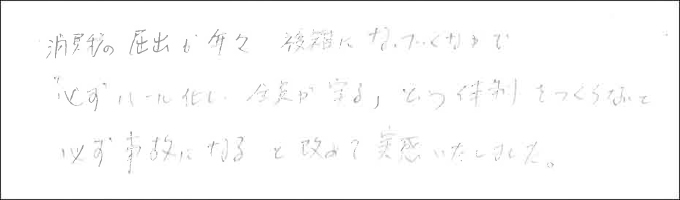 消費税の届出が年々 複雑になっていく中で
"必ずルール化し、全員が守る" という体制をつくらないと
必ず事故になると改めて実感いたしました。